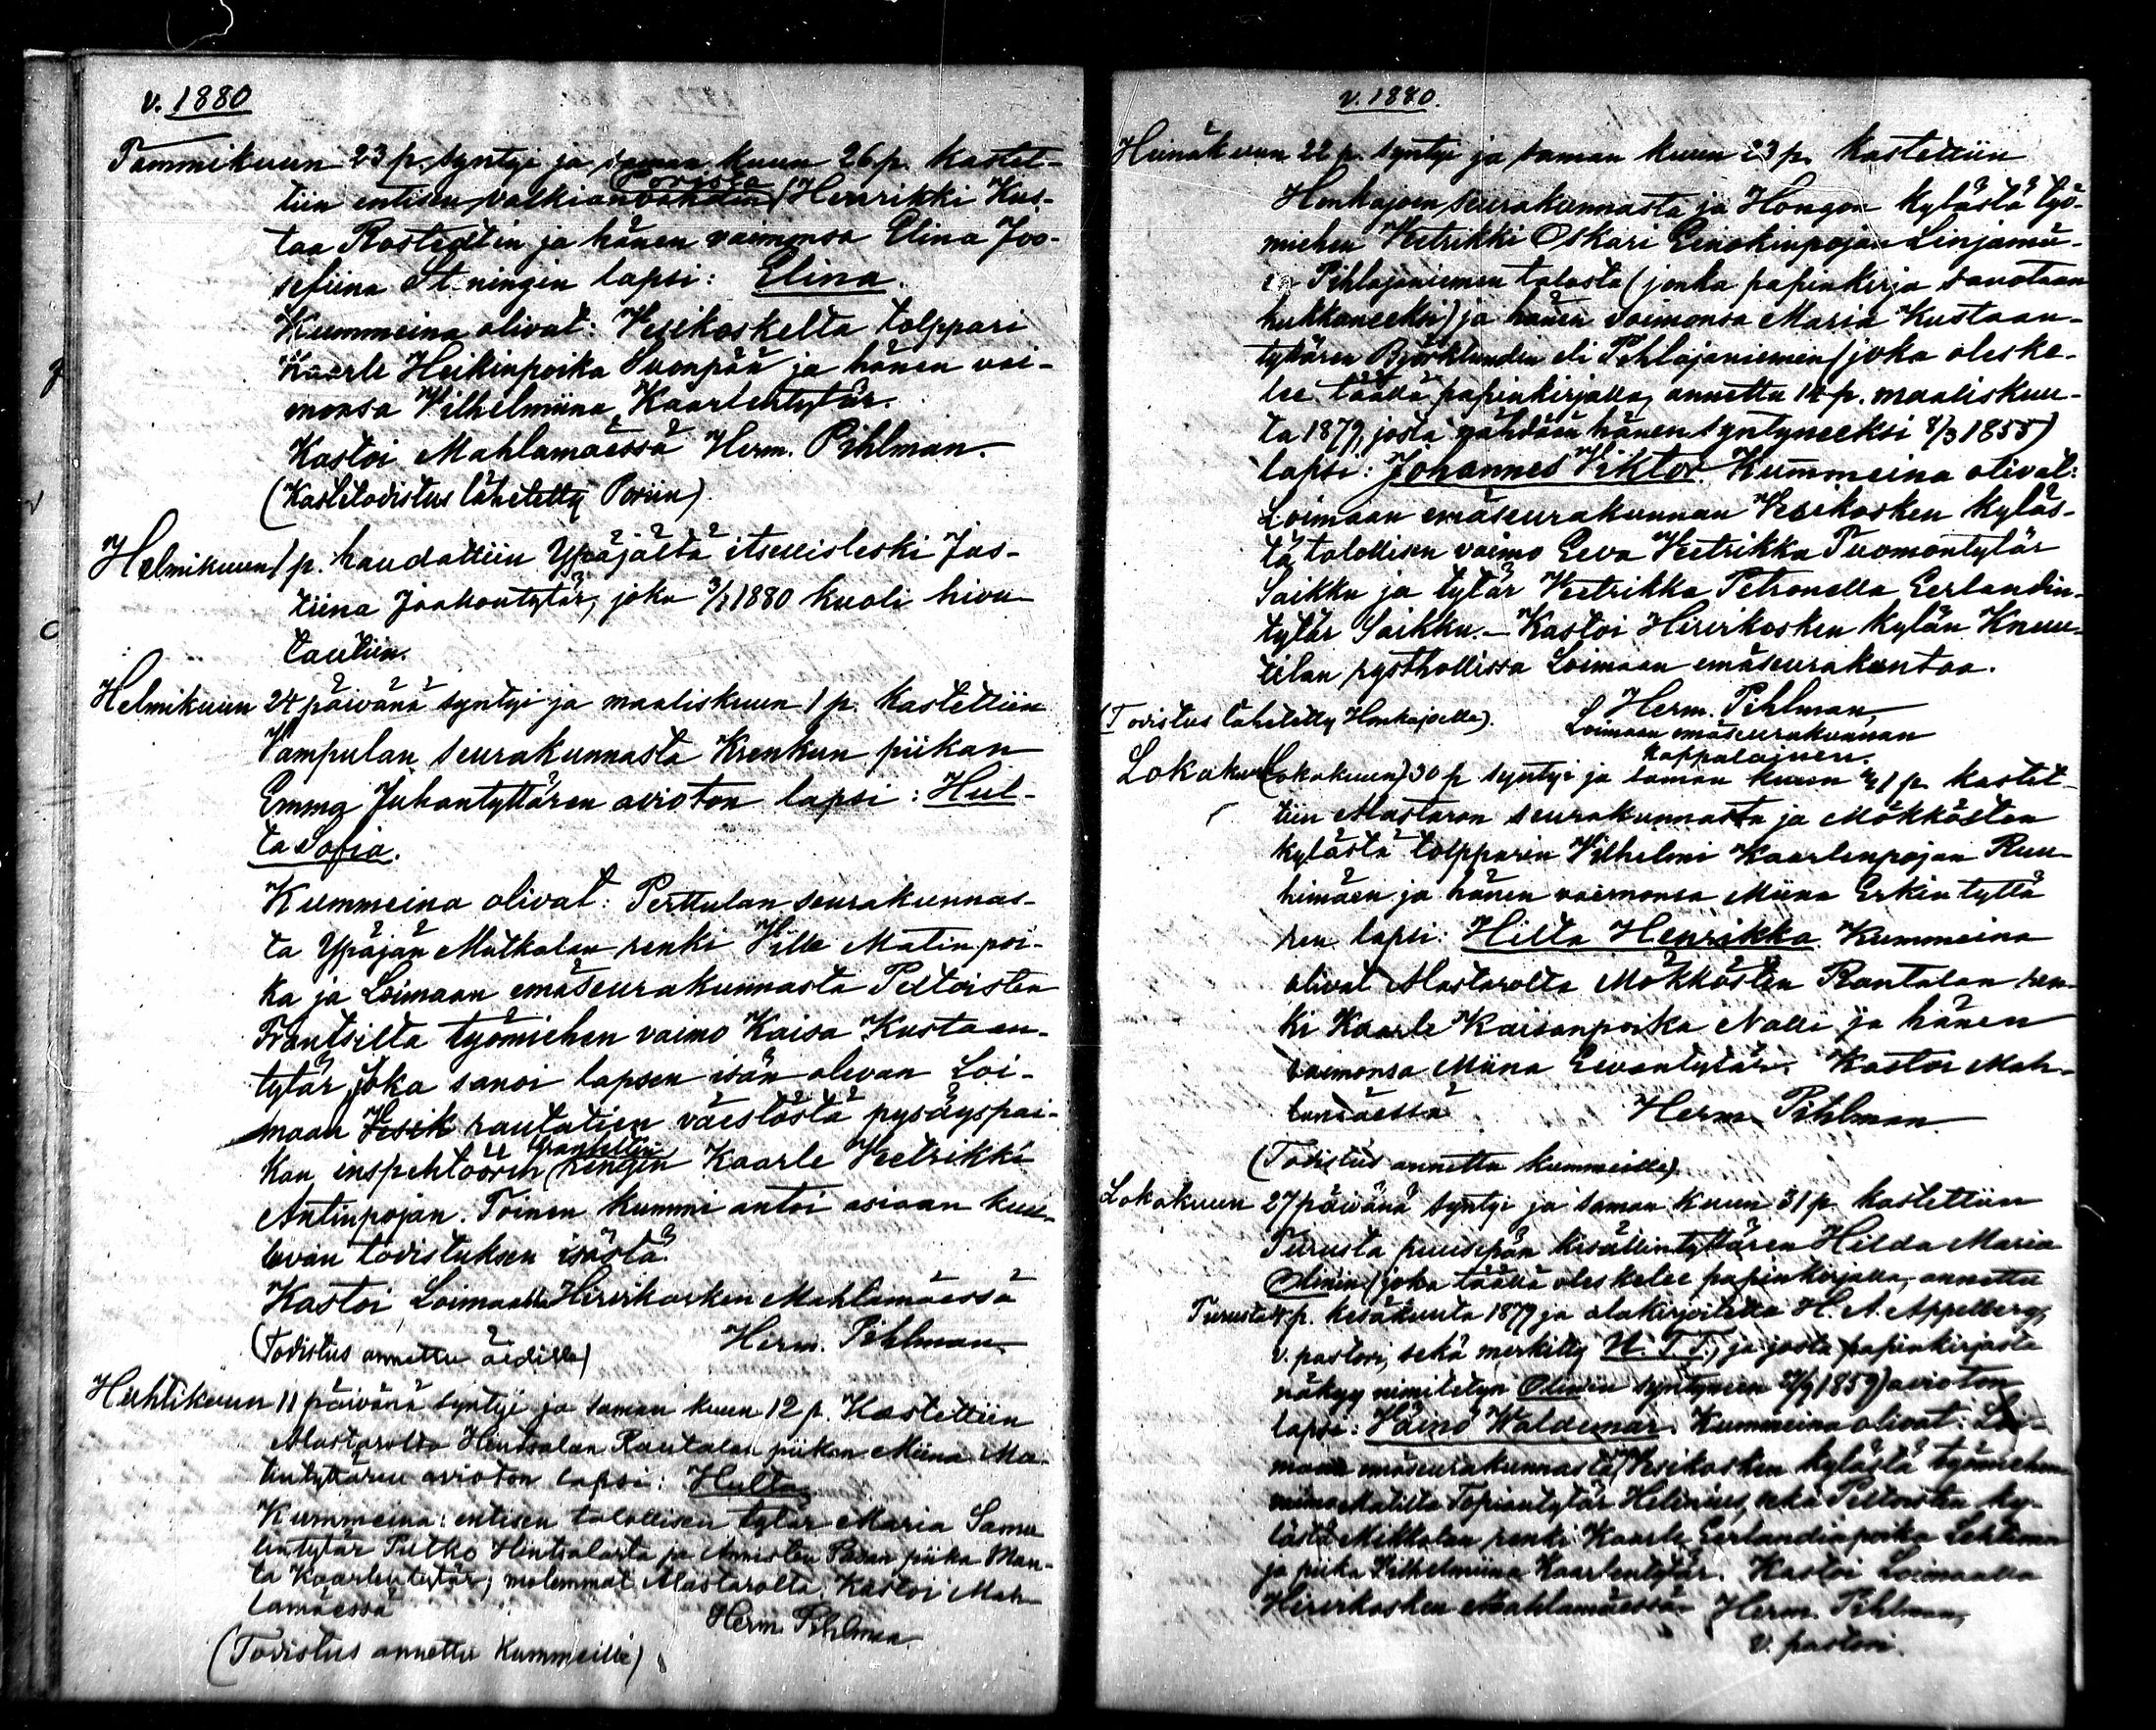 v. 1880
Tammikuun 23 p. syntyi ja saman kuun 26 p. kastet-
tiin entisen valkianvahdin Porista (Henrikki Kus-
taa Rostedtin ja hänen vaimonsa Elina Joo-
sefiina St ningin lapsi: Elina.
Kummeina olivat: Vesikoskelta tolppari
Kaarle Heikinpoika Suonpää ja hänen vai-
monsa Vilhelmiina Kaarlentytär.
Kastoi Mahlamäessä Herm. Pihlman.
(Kastetodistus lähetetty Poriin)
Helmikuun 1 p. haudattiin Ypäjältä itsellisleski Jus-
tiina Jaakontytär, joka 3/1 1880 kuoli hivu-
tautiin.
Helmikuun 24 päivänä syntyi ja maaliskuun 1 p. kastettiin
Vampulan seurakunnasta Krenkun piikan
Emma Juhontyttären avioton lapsi: Hul-
ta Sofia.
Kummeina olivat: Perttulan seurakunnas-
ta Ypäjän Matkalan renki Ville Matinpoi-
ka ja Loimaan emäseurakunnasta Peltoisten
Frantsilta työmiehen vaimo Kaisa Kustaan-
tytär, joka sanoi lapsen isän olevan Loi-
maan Vesik rautatien väestöstä pysäyspai-
kan inspehtöörin rengin Kaarle Veetrikki
Antinpojan. Toinen kummi antoi asiaan kuu-
luvan todistuksen isästä.
Kastoi Loimaalla Hirvikosken Mahlamäessä
(Todistus annettu äidille) Herm. Pihlman.
Huhtikuun 11 päivänä syntyi ja saman kuun 12 p. Kastettiin
Alastarolta Hintsalan Rautalan piikan Miina Ma-
tintyttären avioton lapsi: Hulta
Kummeina: entisen talollisen tytär Maria Samu
lintytär Putko Hintsalasta ja Annisten Pasan piika Man-
ta Kaarlentytär; molemmat Alastarolta. Kastoi Mah-
lamäessä Herm. Pihlman
(Todistus annettu kummeille)
v. 1880.
Heinäkuun 22 p. syntyi ja saman kuun 23 p. kastettiin
Honkajoen seurakunnasta ja Hongon kylästä työ-
miehen Veetrikki Oskari Einokinpojan Linjamä-
en Pihlajaniemen talosta (jonka papinkirja sanotaan
hukkuneeksi) ja hänen vaimonsa Maria Kustaan-
tyttären Björklundin eli Pihlajaniemen (joka oleske-
lee täällä papinkirjalla, annettu 14 p. maaliskuu-
ta 1879, josta nähdään hänen syntyneeksi 8/3 1855)
lapsi: Johannes Viktor. Kummeina olivat:
Loimaan emäseurakunnan Vesikosken kyläs-
tä talollisen vaimo Eeva Veetrikka Tuomontytär
Saikku ja tytär Veetrikka Petronella Eerlandin-
tytär Saikku. – Kastoi Hirvikosken kylän Knuu-
tilan rysthollissa Loimaan emäseurakuntaa.
Herm. Pihlman,
(Todistus lähetetty Honkajoelle). Loimaan emäseurakunnan
kappalainen.
Lokakuu (Lokakuun) 30 p. syntyi ja saman kuun 31 p. kastet-
tiin Alastaron seurakunnasta ja Mökkösten
kylästä tolpparin Vilhelmi Kaarlenpojan Ruu-
himäen ja hänen vaimonsa Miina Erkintyttä
ren lapsi: Hilta Henrikka Kummeina
olivat Alastarolta Mökkösten Rantalan ren-
ki Kaarle Kaisanpoika Nalli ja hänen
vaimonsa Miina Eevantytär. Kastoi Mah-
lamäessä Herm. Pihlman
(Todistus annettu kummeille).
Lokakuun 27 päivänä syntyi ja saman kuun 31 p. kastettiin
Turusta puusepän kisällintyttären Hilda Maria
Olinin (joka täällä oleskelee papinkirjalla, annettu
Turusta 4 p. kesäkuuta 1879 ja alakirjoitettu H. A. Appelberg,
v. pastori, sekä merkitty N. T. T., ja josta papinkirjasta
näkyy nimitetyn Olinin syntyneen 1859) avioton
lapsi: Väinö Waldemar. Kummeina olivat: Loi-
maan emäseurakunnasta Vesikosken kylästä työmiehen
vaimo Matilta Topiantytär Helenius, sekä Peltoisten ky-
lästä Mikkolan renki Kaarle Eerlandinpoika Lehtinen
ja piika Vilhelmiina Kaarlentytär. Kastoi Loimaalla
Hirvikosken Mahlamäessä Herm. Pihlman,
v. pastori.